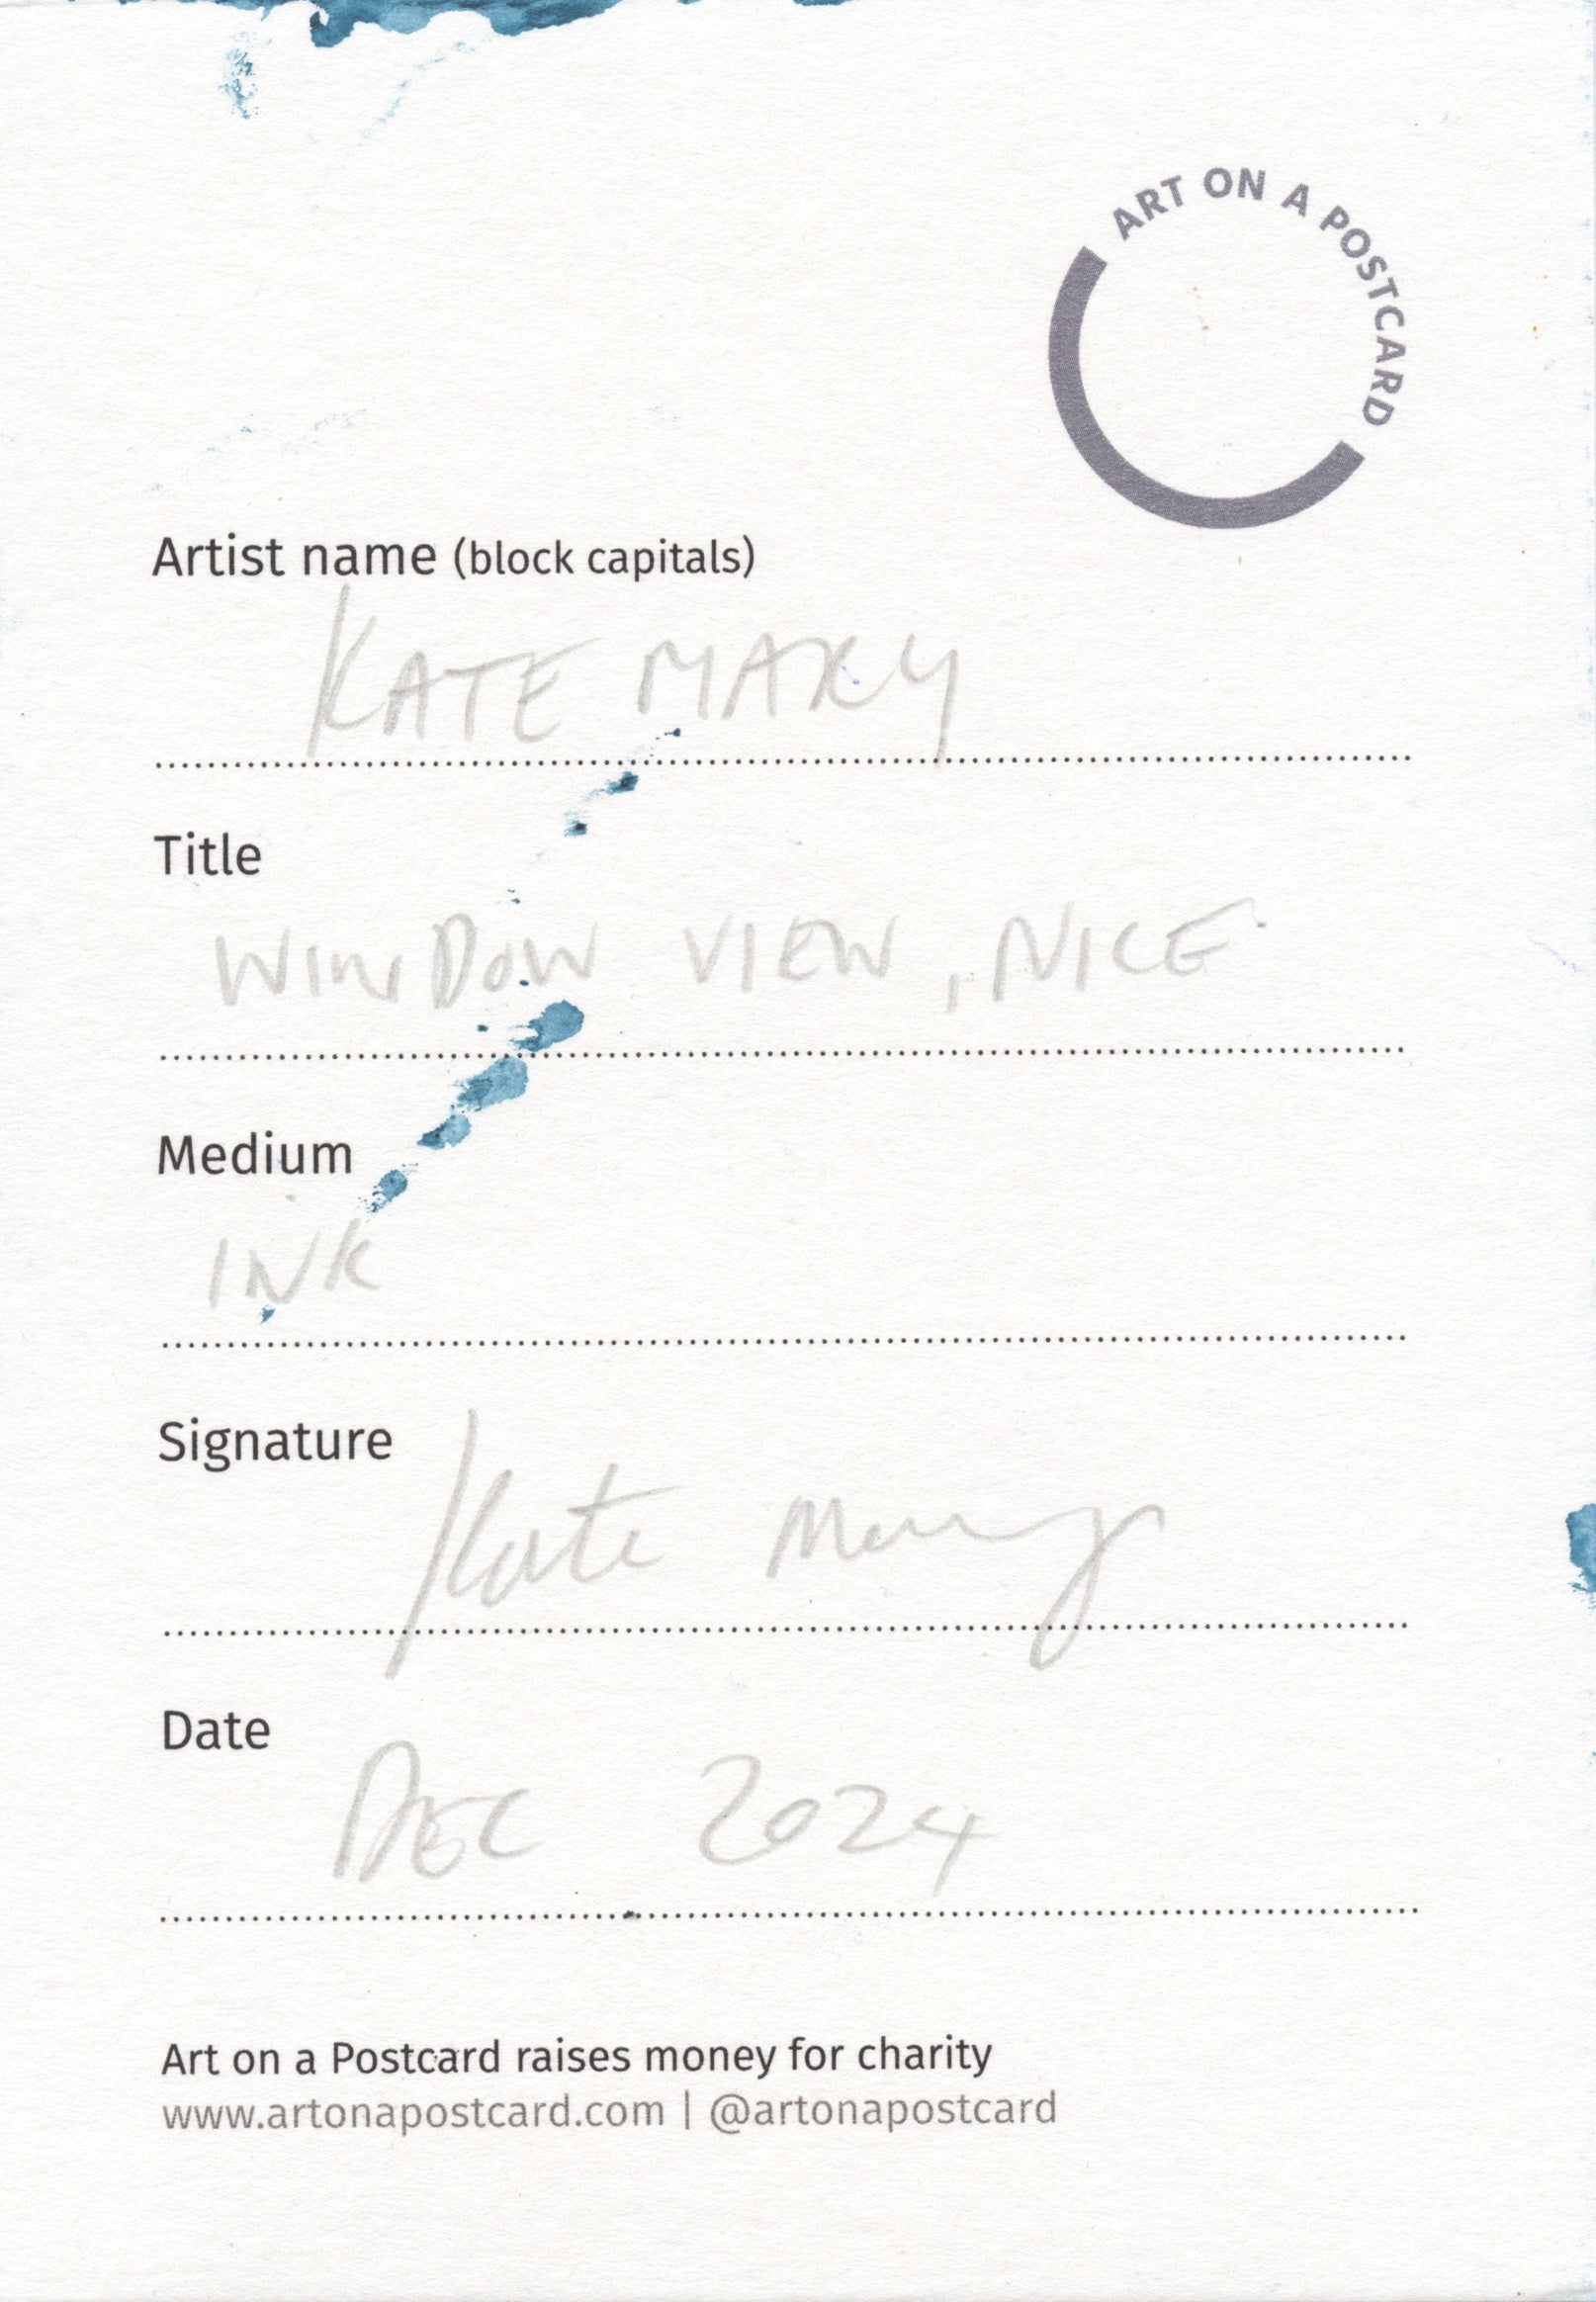 ART ON A POSTCARD
Artist name (block capitals)
KATE MARY
Title
WINDOW VIEW, NICE
Medium
INK
Signature
Kate Mary
Date
DEC 2024
Art on a Postcard raises money for charity
www.artonapostcard.com | @artonapostcard